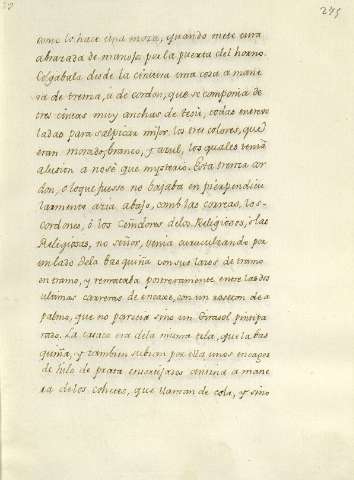 275
como lo hace una moza, quando mete una
abrazada de manojos por la puerta del horno.
Colgabala desde la cintura una cosa a mane
ra de trenza, ú de cordon, que se componia de
tres cintas muy anchas de tisú, todas entreve
ladas para salpicar mejor los tres colores, que
eran morado, blanco, y azul, los quales tenian
alusion a no sé que mysterio. Esta trenza cor
don, o loque fuesse no bajaba en perpendicu
larmente azia abajo, como las correas, los
cordones, ó los ceñidores delos Religiosos, ó las
Religiosas, no señor, venia caracoleando por
un lado dela basquiña con sus lazos de tramo
en tramo, y remataba postreramente entre las dos
ultimas carreras de encaxe, con un roseton de a
palmo, que no parecia sino un Girasol pinipa
rado. La casaca era dela misma tela, que la bas
quiña, y tambien subian por ella unos encages
de hilo de prata ensortijados encima a mane
ra delos cohetes, que llaman de cola, y sino